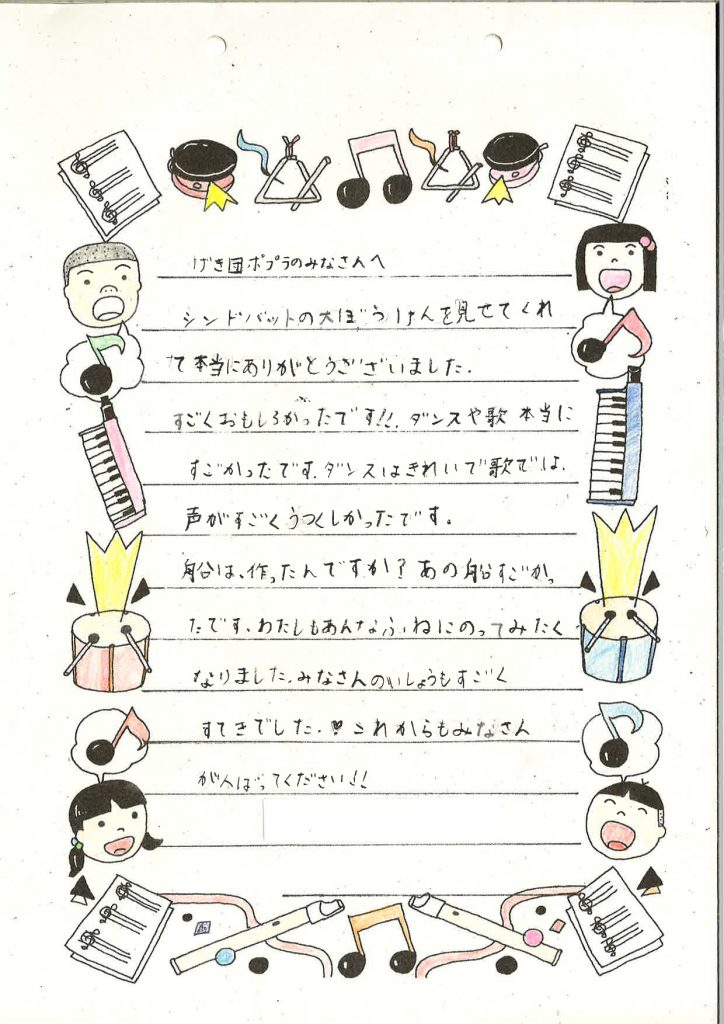 げき団ポプラのみなさんへ
シンドバットの大ぼうけんを見せてくれ
て本当にありがとうございました.
すごくおもしろかったです!!.ダンスや歌 本当に
すごかったです.ダンスはきれいで歌では、
声がすごくうつくしかったです。
船は、作ったんですか?あの船すごかっ
たです、わたしもあんなふねにのってみたく
なりました.みなさんのいしょうもすごく
すてきでした.♥これからもみなさん
がんばってください!!